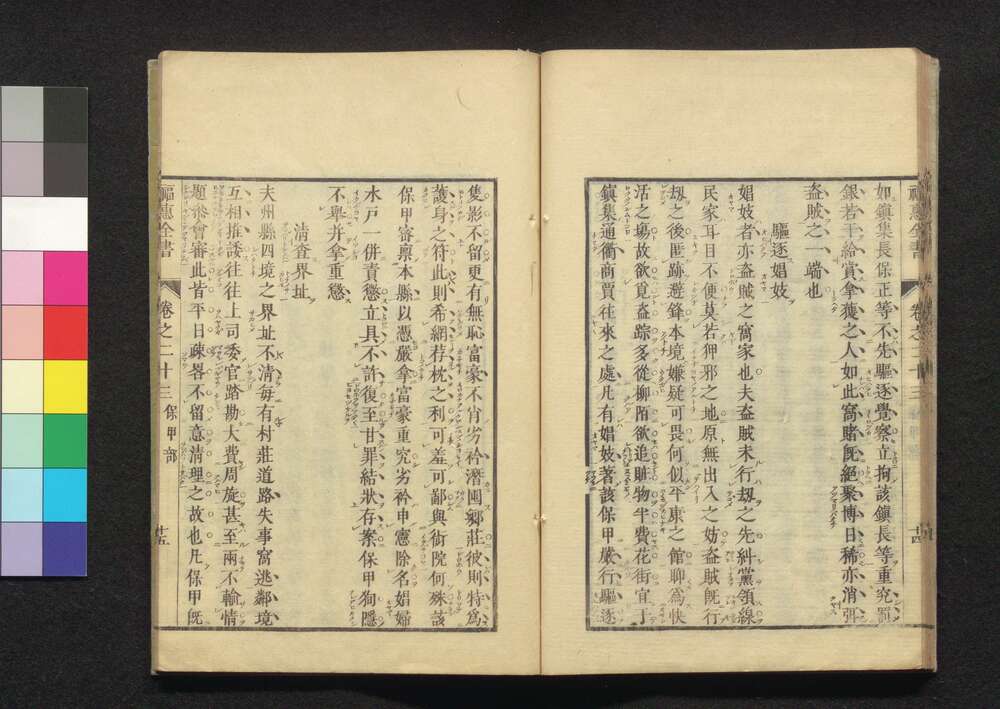 如鎮集長保正等不先驅逐覺察立拘該鎮長等重究罰
銀若干給賞拿獲之人如此窩賭既絕聚博日稀亦消弭
盗賊之一端也
驅逐娼妓
娼妓者亦盗賊之窩家也夫盗賊未行刼之先糾黨領線
民家耳目不便莫若狎邪之地原無出入之妨盗賊既行
刼之後匿跡避鋒本境嫌疑可畏何似平康之館聊為快
活之場故欲覓盗踪多從柳陌欲追贓物半費花街宜于
鎮集通衢商賈往來之處凡有娼妓著該保甲嚴行驅逐
隻影不留更有無恥富豪不肖劣衿潛圖鄉莊彼則恃為
護身之符此則希網荐枕之利可羞可鄙與衏院何殊該
保甲密禀本縣以憑嚴拿富豪重究劣衿申憲除名娼婦
水戸一併責懲立具不許復至甘罪結狀存案保甲狥隱
不舉并拿重懲
清查界址
夫州縣四境之界址不清毎有村莊道路失事窩逃鄰境
互相推諉往往上司委官踏勘大費周旋甚至兩不輸情
題叅會審此皆平日疎畧不留意清理之故也凡保甲既
福惠全書
卷之二十三
保甲部
十五
福惠全書
卷之二十三
十四